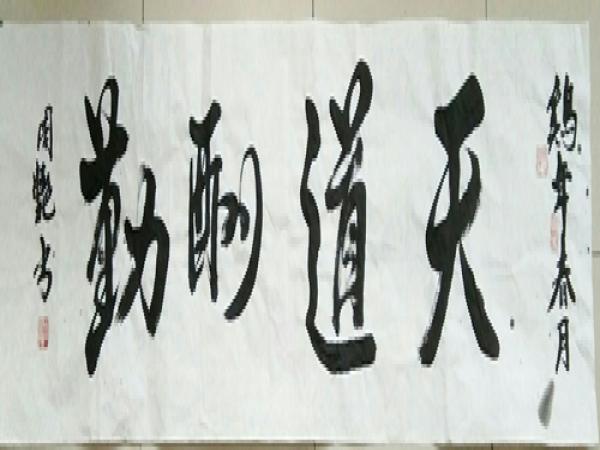 鸡年春月
天道酬勤
周艳书